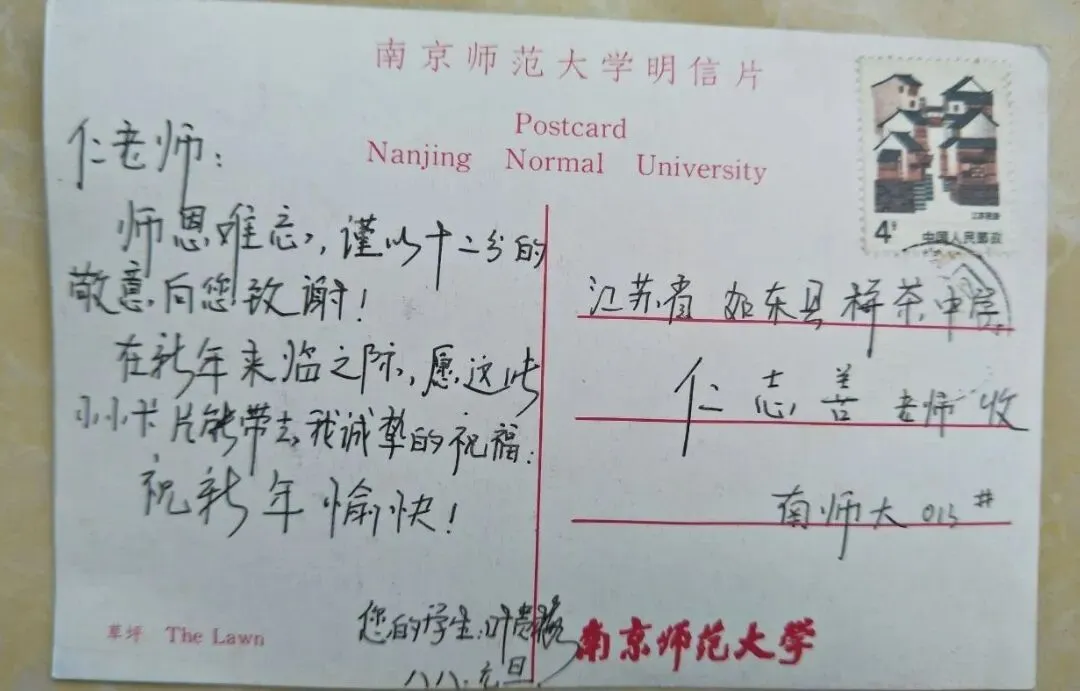 南京师范大学明信片
Postcard
Nanjing Normal University
仁老师：
师恩难忘，谨以十二分的
敬意，向您致谢！
在新年来临之际，愿这些
小小卡片能带去我诚挚的祝福：
祝新年愉快！
您的学生：叶
八八.元旦.
草坪 The Lawn
4分
中国人民邮政
江苏省如东县栟茶中学
仁志善老师收
南师大013#
南京师范大学